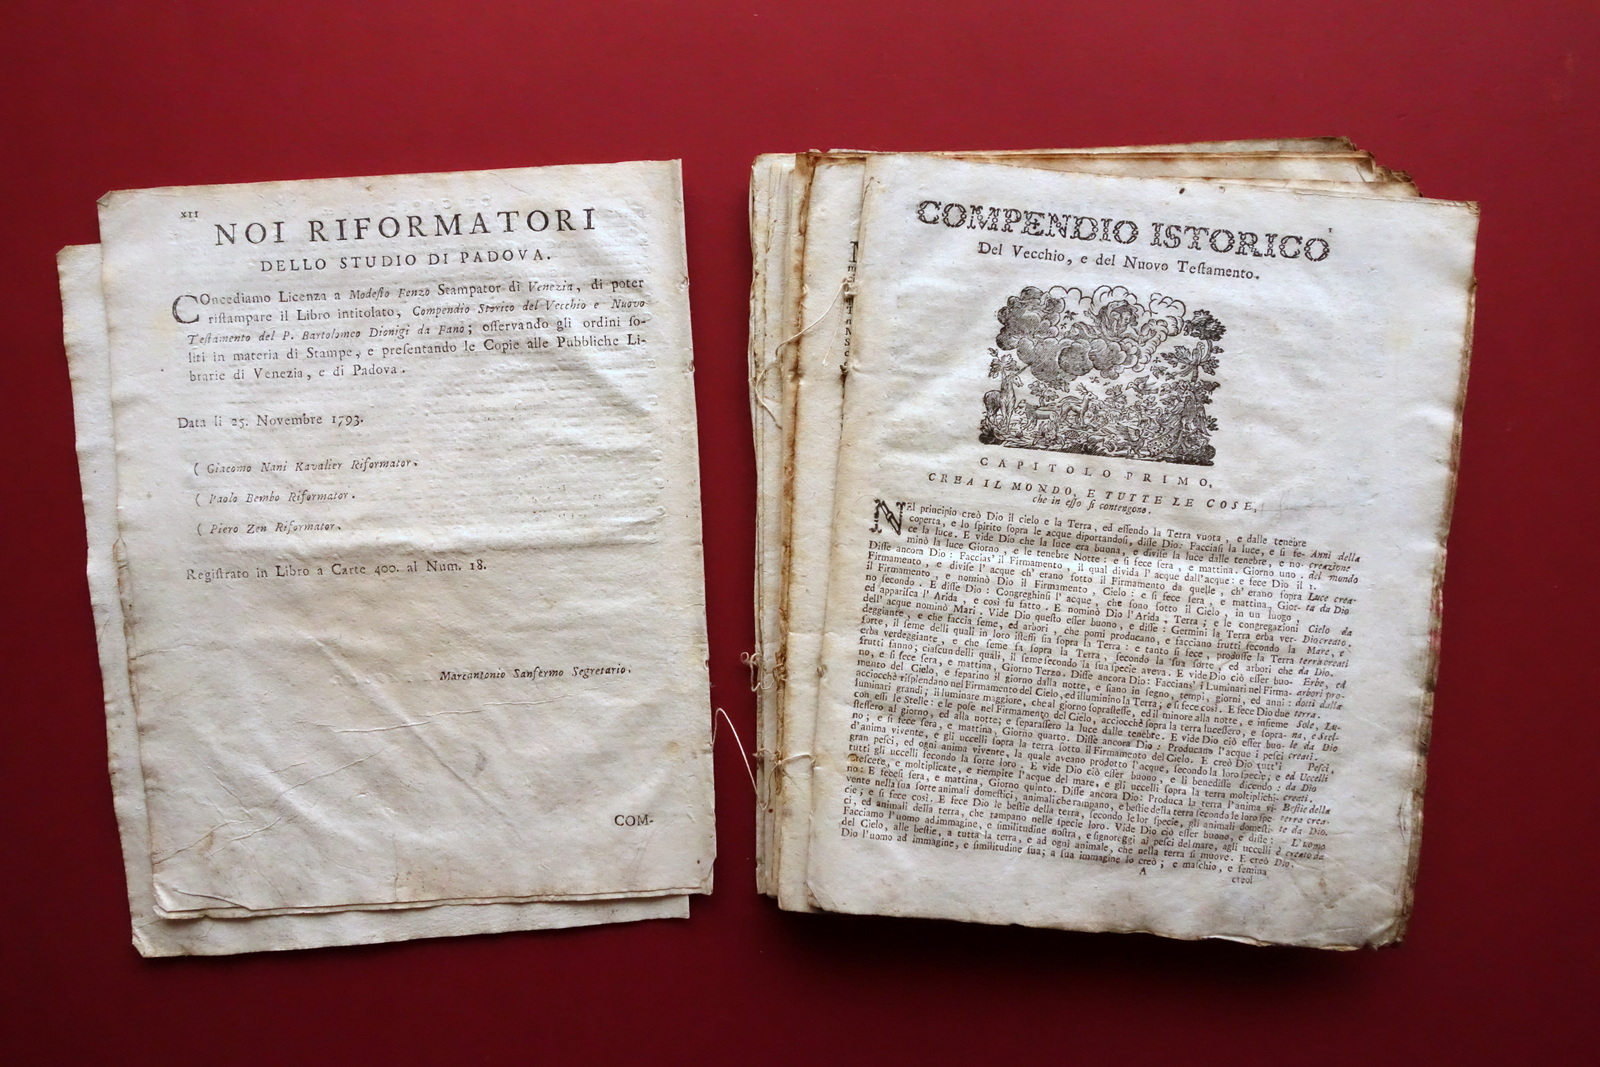 XII
NOI RIFORMATORI
DELLO STUDIO DI PADOVA.
COncediamo Licenza a Modesto Fenzo Stampator di Venezia, di poter
ristampare il Libro intitolato, Compendio Storico del Vecchio e Nuovo
Testamento del P. Bartolomeo Dionigi da Fano; osservando gli ordini so-
liti in materia di Stampe, e presentando le Copie alle Pubbliche Li-
brarie di Venezia, e di Padova.
Data li 25. Novembre 1793.
( Giacomo Nani Kavalier Riformator.
( Paolo Bembo Riformator.
( Piero Zen Riformator.
Registrato in Libro a Carte 400. al Num. 18.
Marcantonio Sanfermo Segretario.
COM-
COMPENDIO ISTORICO
Del Vecchio, e del Nuovo Testamento.
CAPITOLO PRIMO,
CREA IL MONDO, E TUTTE LE COSE,
che in esso si contengono.
NEl principio creò Dio il cielo e la Terra, ed essendo la Terra vuota, e dalle tenebre
coperta, e lo spirito sopra le acque diportandosi, disse Dio: Facciasi la luce, e si fe- Anni della
ce la luce. E vide Dio che la luce era buona, e divise la luce dalle tenebre, e no- creazione
minò la luce Giorno, e le tenebre Notte: e si fece sera, e mattina. Giorno uno. del mondo
Disse ancora Dio: Faccias' il Firmamento, il qual divida l'acque dall'acque: e fece Dio il 1.
Firmamento, e divise l'acque ch'erano sotto il Firmamento da quelle, ch'erano sopra Luce crea-
Firmamento, e nominò Dio il Firmamento, Cielo: e si fece sera, e mattina, Gior- ta da Dio
no secondo. E disse Dio: Congreghinsi l'acque, che sono sotto il Cielo, in un luogo,
ed apparisca l'Arida, e così fu fatto. E nominò Dio l'Arida, Terra; e le congregazioni Cielo da
dell'acque nominò Mari. Vide Dio questo esser buono, e disse: Germini la Terra erba ver- Dio creato.
deggiante, e che faccia seme, ed arbori, che pomi producano, e facciano frutti secondo la Mare, e
sorte, il seme delli quali in loro istessi sia sopra la Terra: e tanto si fece, produsse la Terra terra creati
erba verdeggiante, e che seme fa sopra la Terra, secondo la sua sorte, ed arbori che da Dio.
frutti fanno; ciascun delli quali, il seme secondo la sua specie aveva. E vide Dio ciò esser buo- Erbe, ed
no, e si fece sera, e mattina, Giorno Terzo. Disse ancora Dio: Faccians' i Luminari nel Firma- arbori pro-
mento del Cielo, e separino il giorno dalla notte, e siano in segno, tempi, giorni, ed anni: dotti dalla
acciocchè risplendano nel Firmamento del Cielo, ed illumino la Terra; e si fece così. E fece Dio due terra.
luminari grandi; il luminare maggiore, che al giorno soprastesse, ed il minore alla notte, e insieme Sole, Lu-
con essi le Stelle: e le pose nel Firmamento del Cielo, acciocchè sopra la terra lucessero, e sopra- na, e Stel-
stessero al giorno, ed alla notte; e separassero la luce dalle tenebre. E vide Dio ciò esser buo- le da Dio
no; e si fece sera, e mattina, Giorno quarto. Disse ancora Dio: Producano l'acque i pesci creati.
d'anima vivente, e gli uccelli sopra la terra sotto il Firmamento del Cielo. E creò Dio tutt'i Pesci,
gran pesci, ed ogni anima vivente, la quale aveano prodotto l'acque, secondo la loro specie; e ed Uccelli
tutti gli uccelli secondo la sorte loro. E vide Dio ciò esser buono, e li benedisse dicendo: da Dio
Crescete, e moltiplicate, e riempite l'acque del mare, e gli uccelli sopra la terra moltiplichi- creati.
no: E fecesi sera, e mattina, Giorno quinto. Disse ancora Dio: Produca la terra l'anima vi- Bestie della
vente nella sua sorte animali domestici, animali che rampano, e bestie della terra secondo le loro spe- terra crea-
cie; e si fece così. E fece Dio le bestie della terra, secondo le lor specie, gli animali domesti- te da Dio.
ci, ed animali della terra, che rampano nelle specie loro. Vide Dio ciò esser buono, e disse: L'uomo
Facciamo l'uomo ad immagine, e similitudine nostra, e signoreggi ai pesci del mare, agli uccelli è creato da
del Cielo, alle bestie, a tutta la terra, e ad ogni animale, che nella terra si muove. E creò Dio.
Dio l'uomo ad immagine, e similitudine sua; a sua immagine lo creò; e maschio, e femina
A
creol